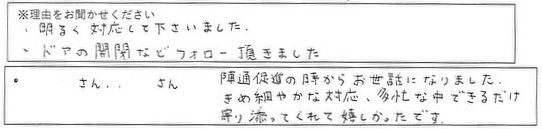 ※理由をお聞かせください
・明るく対応して下さいました.
・ドアの開閉などフォロー頂きました
・ さん.. さん 陣通促進の時からお世話になりました.
きめ細やかな対応、多忙な中できるだけ
寄り添ってくれて嬉しかったです.